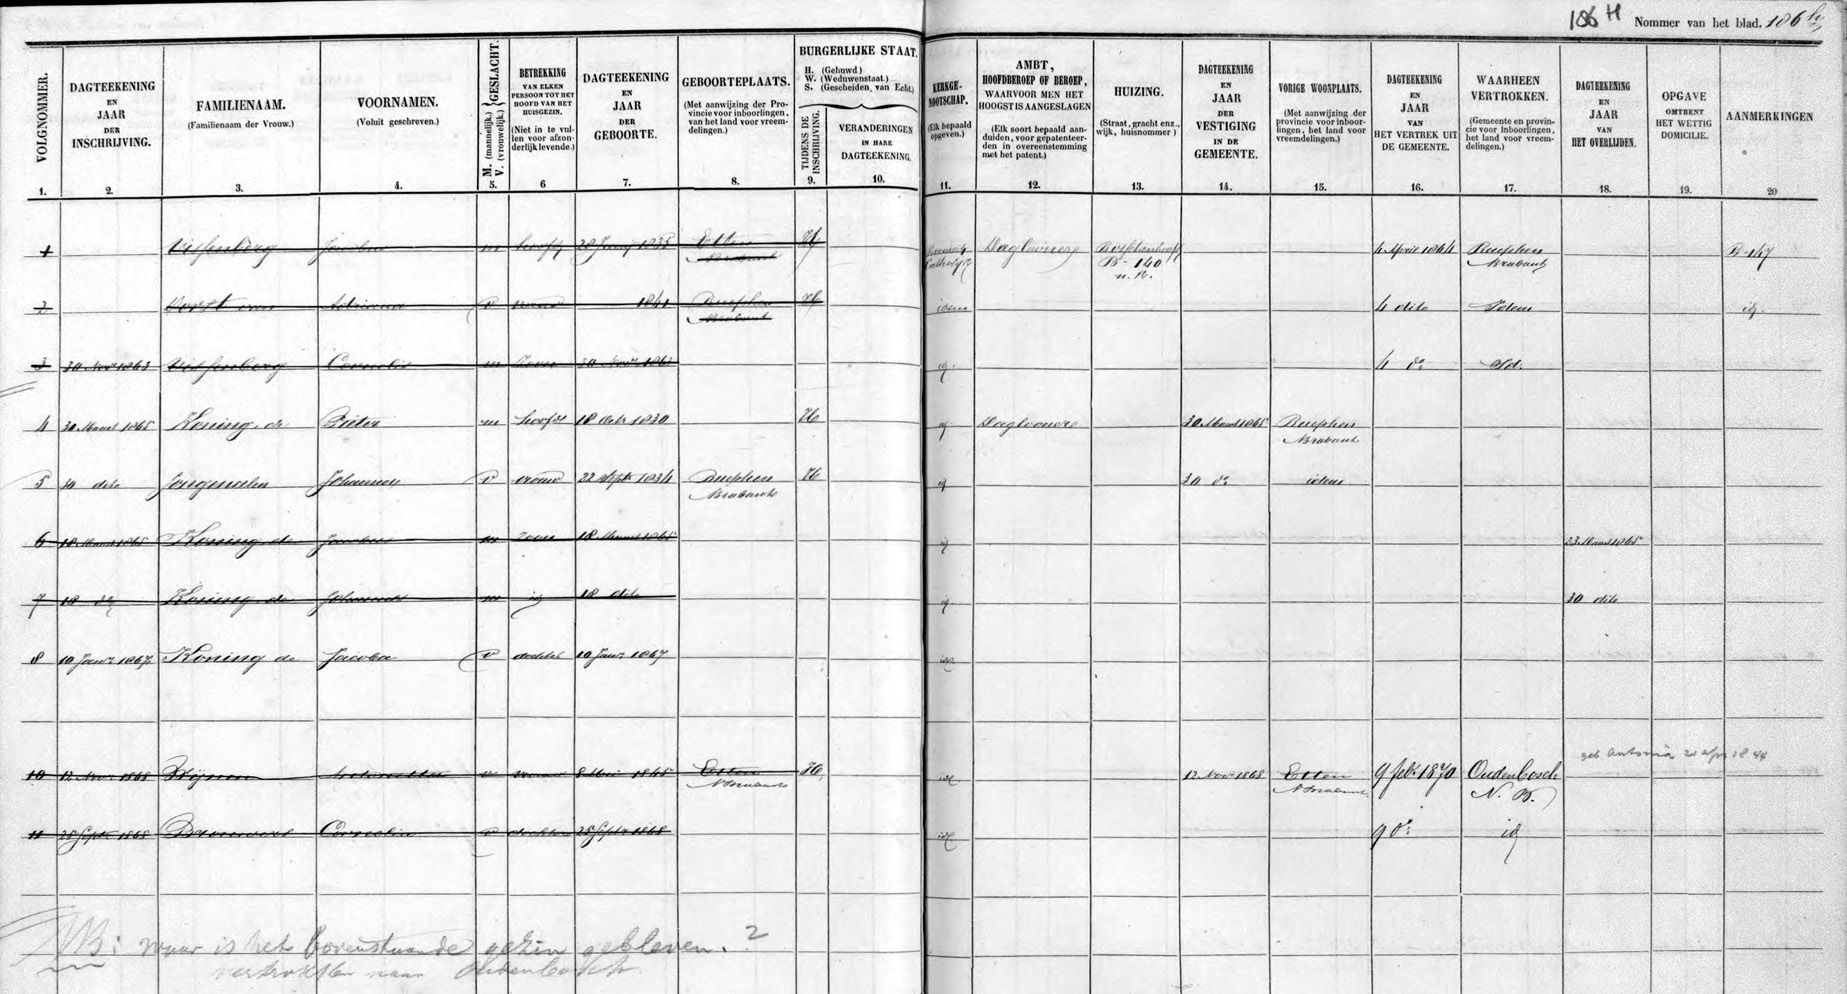 186 H Nommer van het blad. 186
VOLGNOMMER.
DAGTEEKENING EN JAAR DER INSCHRIJVING.
FAMILIENAAM.
(Familienaam der Vrouw.)
VOORNAMEN.
(Voluit geschreven.)
M. (mannelijk.) V. (vrouwelijk.) GESLACHT.
BETREKKING
VAN ELKEN PERSOON TOT HET HOOFD VAN HET HUISGEZIN.
(Niet in te vullen voor afzonderlijk levende.)
DAGTEEKENING EN JAAR DER GEBOORTE.
GEBOORTEPLAATS.
(Met aanwijzing der Provincie voor inboorlingen, van het land voor vreemdelingen.)
BURGERLIJKE STAAT.
H. (Gehuwd)
W. (Weduwenstaat)
S. (Gescheiden van Echt.)
TIJDENS DE INSCHRIJVING.
VERANDERINGEN IN HARE DAGTEEKENING.
KERKGENOOTSCHAP.
(Elk bepaald opgeven.)
AMBT, HOOFDBEROEP OF BEROEP, WAARVOOR MEN HET HOOGST IS AANGESLAGEN
(Elk soort bepaald aanduiden, voor gepatenteerden in overeenstemming met het patent.)
HUIZING.
(Straat, gracht enz., wijk, huisnommer)
DAGTEEKENING EN JAAR DER VESTIGING IN DE GEMEENTE.
VORIGE WOONPLAATS.
(Met aanwijzing der provincie voor inboorlingen, het land voor vreemdelingen.)
DAGTEEKENING EN JAAR VAN HET VERTREK UIT DE GEMEENTE.
WAARHEEN VERTROKKEN.
(Gemeente en provincie voor inboorlingen, het land voor vreemdelingen.)
DAGTEEKENING EN JAAR VAN HET OVERLIJDEN.
OPGAVE OMTRENT HET WETTIG DOMICILIE.
AANMERKINGEN
1. 2. 3. 4. 5. 6 7. 8. 9. 10. 11. 12. 13. 14. 15. 16. 17. 18. 19. 20
1 m hoofd 1835 Etten Brabant H Daglooner B- 140 4 April 1864 Rucphen Brabant B 147
2 Adriana v vrouw 1841 Rucphen Brabant H idem 4 dito Idem id.
3 30 Novr 1863 Cornelis m Zoon 30 Novr 1863 id. 4 do Id.
4 30 Maart 1865 Koning de Pieter m hoofd 18 1830 H id Daglooner 30 Maart 1865 Rucphen Brabant
5 30 dito Johanna v vrouw 22 Septr 1834 Rucphen Brabant H id 30 do idem
6 18 Maart 1865 Koning de Jacobus m Zoon 18 Maart 1865 id 23 Maart 1865
7 18 do Koning de m id 18 dito id 30 dito
8 10 Janr 1867 Koning de Jacoba v dochter 10 Janr 1867 id
10 12 Novr 1868 v vrouw 8 Mei Etten N Brabant H id 12 Novr 1868 Etten N Brabant 9 febr 1870 Oudenbosch N. B.
geb Antonia
11 25 Septr 1868 Cornelia v dochter 25 Septr 1868 id 9 do id
NB: waar is het bovenstaande gezin gebleven. ?
vertrokken naar Oudenbosch